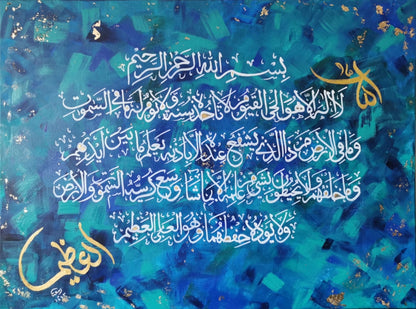 بسم الله الرحمن الرحيم
الله
لا اله الا هو الحي القيوم لا تأخذه سنة ولا نوم له ما في السموت
وما في الارض من ذا الذي يشفع عنده الا باذنه يعلم ما بين ايديهم
وما خلفهم ولا يحيطون بشيء من علمه الا بما شاء وسع كرسيه السموت والارض
ولا يؤده حفظهما وهو العلي العظيم
العظيم